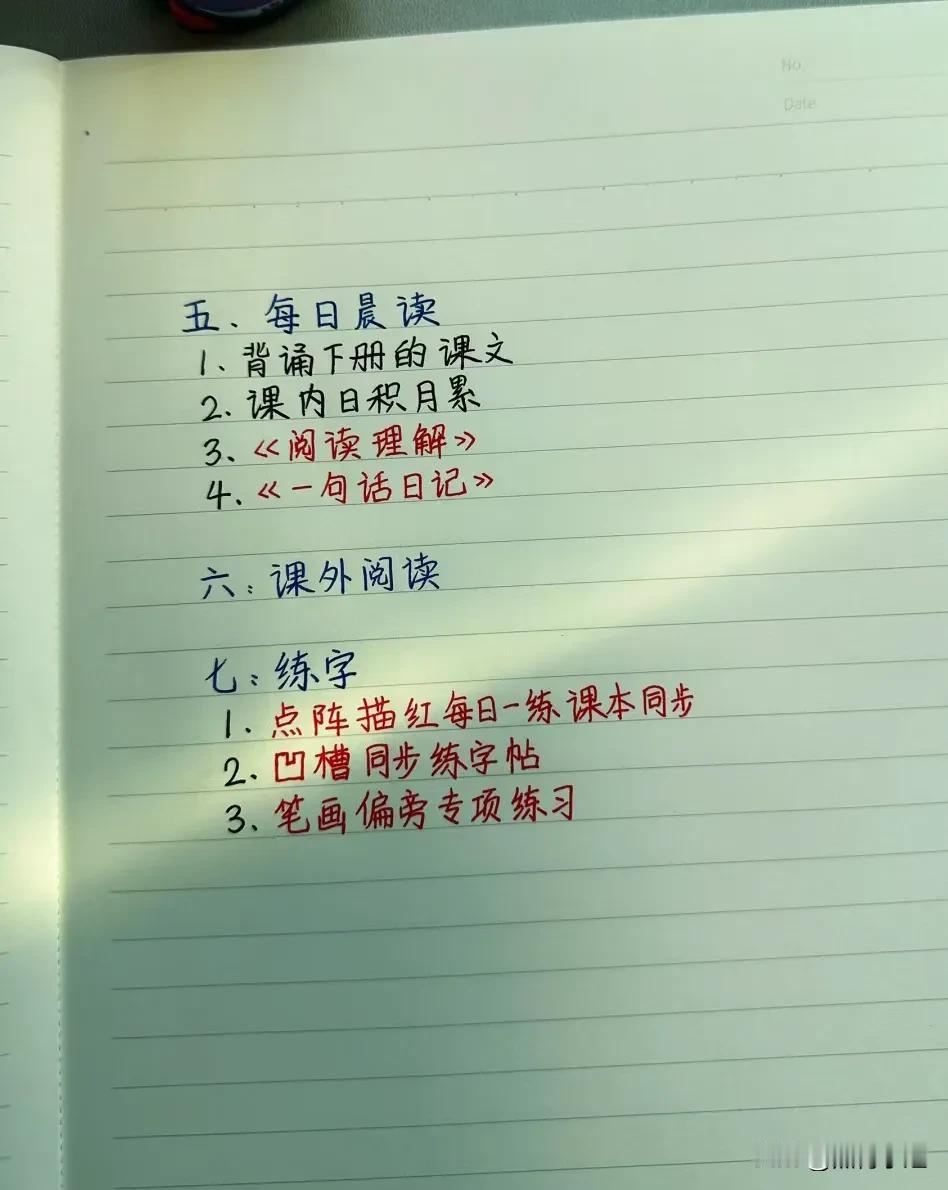 No.
Date
五、每日晨读
1、背诵下册的课文
2、课内日积月累
3、《阅读理解》
4、《一句话日记》
六：课外阅读
七：练字
1、点阵描红每日一练课本同步
2、凹槽同步练字帖
3、笔画偏旁专项练习